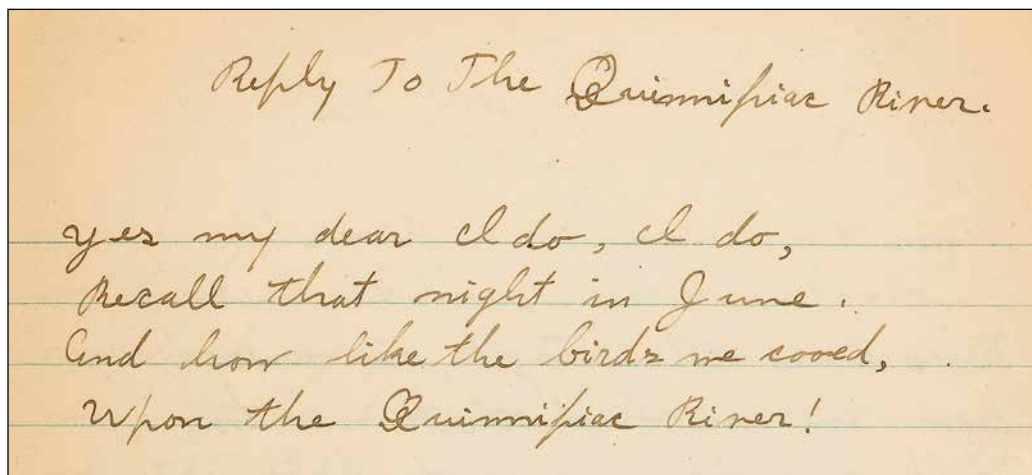 Reply To The Quinnipiac River.
yes my dear I do, I do,
Recall that night in June.
And how like the birds we cooed,
Upon the Quinnipiac River!